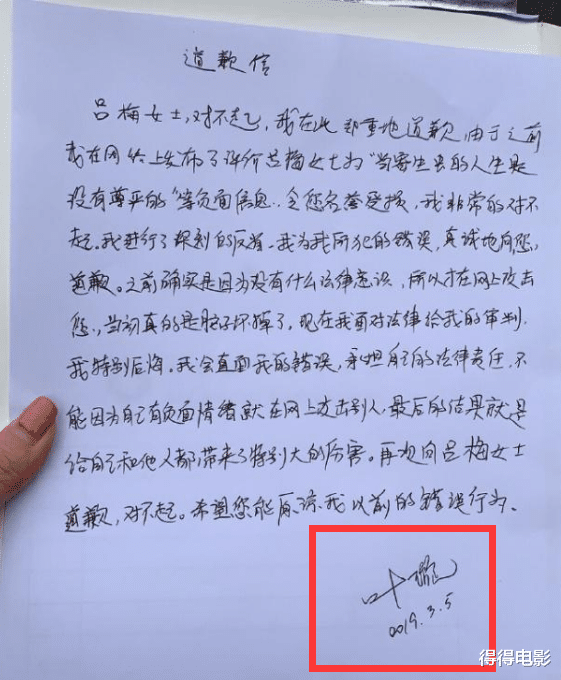 道歉信
吕梅女士,对不起,我在此郑重地道歉,由于之前
我在网络上发布了评价吕梅女士为“当寄生虫的人生是
没有尊严的”等负面信息,令您名誉受损,我非常的对不
起。我进行了深刻的反省,我为我所犯的错误,真诚地向您
道歉。之前确实是因为没有什么法律意识,所以才在网上攻击
您,当初真的是脑子坏掉了,现在我面对法律给我的审判,
我特别后悔。我会直面我的错误,承担自己的法律责任,不
能因为自己有负面情绪就在网上攻击别人,最后的结果就是
给自己和他人都带来了特别大的伤害。再次向吕梅女士
道歉,对不起。希望您能原谅我以前的错误行为。
叶璇
2019.3.5
得得电影